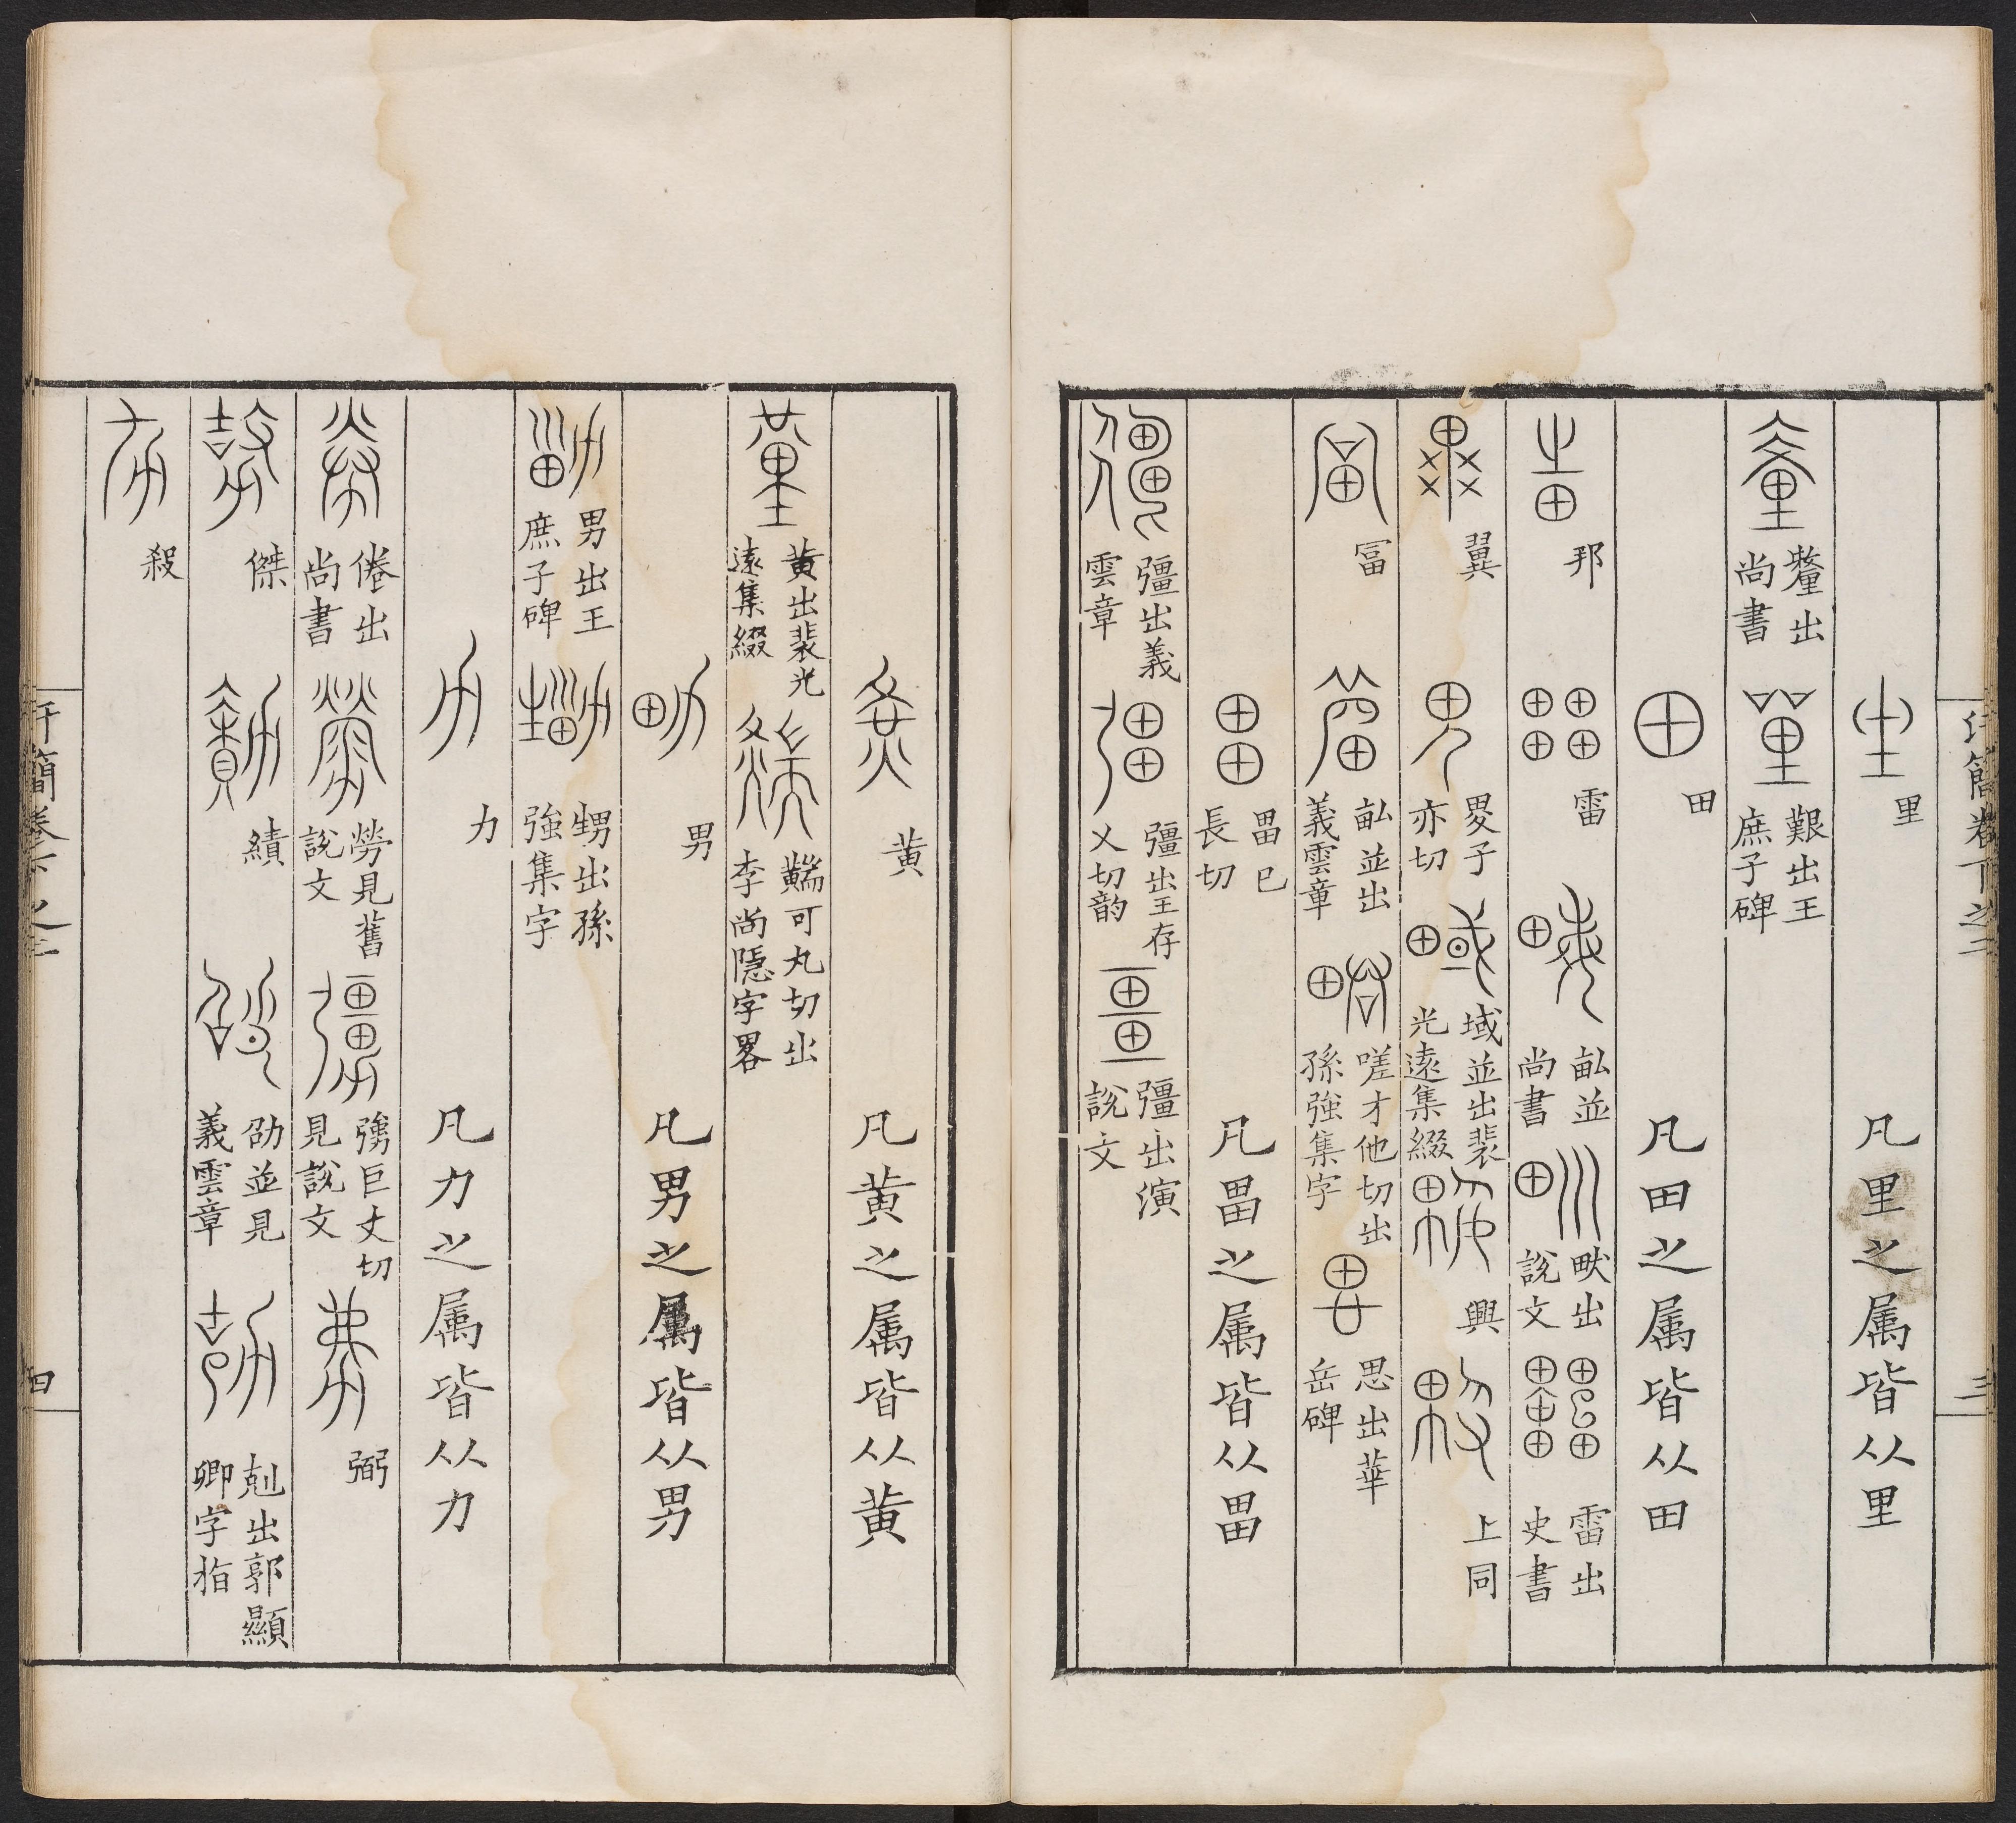 汗簡卷下之二 三
里 凡里之属皆从里
釐出尚書 艱出王庶子碑
田 凡田之属皆从田
邦 雷 畝並尚書 畎出說文 雷出史書
翼 畟子亦切 域並出裴光遠集綴 興 上同
畐 畝並出義雲章 嗟才他切出孫強集字 思出華岳碑
畕已長切 凡畕之属皆从畕
彊出義雲章 彊出王存乂切韵 彊出演說文
黃 凡黃之属皆从黃
黃出裴光遠集綴 黇可丸切出李尚隱字畧
男 凡男之属皆从男
男出王庶子碑 甥出孫強集字
力 凡力之属皆从力
倦出尚書 勞見舊說文 勥巨丈切見說文 弼
傑 績 劭並見義雲章 剋出郭顯卿字指
殺
汗簡卷下之二 四